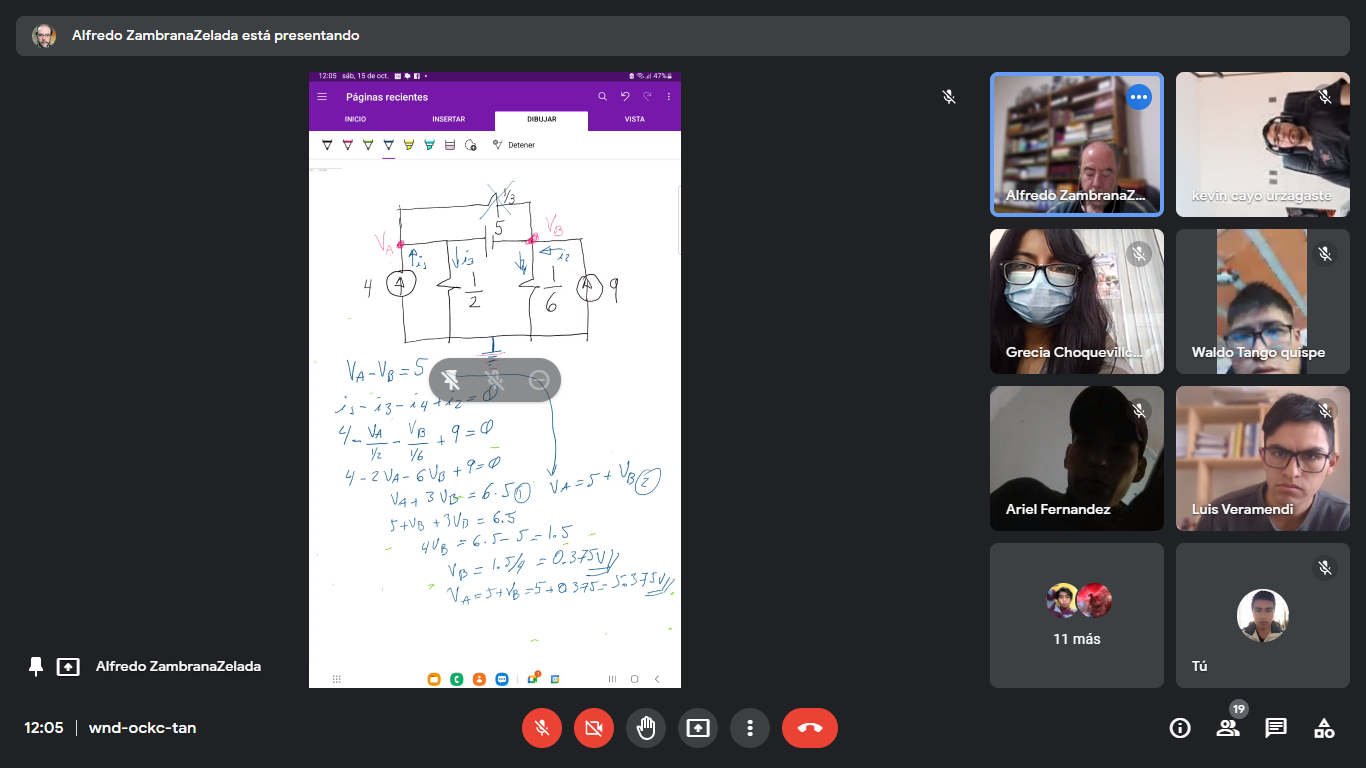 Alfredo ZambranaZelada está presentando
12:05 sáb, 15 de oct.
47%
Páginas recientes
INICIO
INSERTAR
DIBUJAR
VISTA
Detener
1/3
5
VA
VB
i1
i3
i4
i2
4
1/2
1/6
9
VA - VB = 5
i1 - i3 - i4 + i2 = 0
4 - VA/1/2 - VB/1/6 + 9 = 0
4 - 2VA - 6VB + 9 = 0
VA + 3VB = 6.5 ①
VA = 5 + VB ②
5 + VB + 3VB = 6.5
4VB = 6.5 - 5 = 1.5
VB = 1.5/4 = 0.375V
VA = 5 + VB = 5 + 0.375 = 5.375V
Alfredo ZambranaZ...
kevin cayo urzagaste
Grecia Choquevillc...
Waldo Tango quispe
Ariel Fernandez
Luis Veramendi
11 más
Tú
Alfredo ZambranaZelada
12:05 | wnd-ockc-tan
19